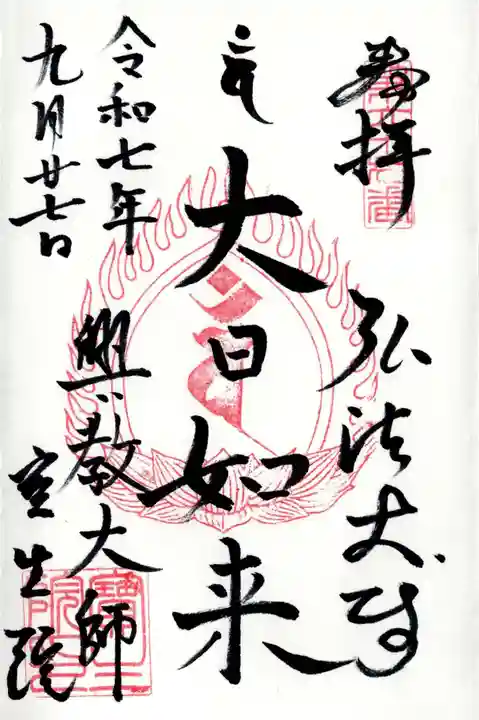 奉拝
弘法大師
大日如来
興教大師
令和七年
九月廿七日
宝生院